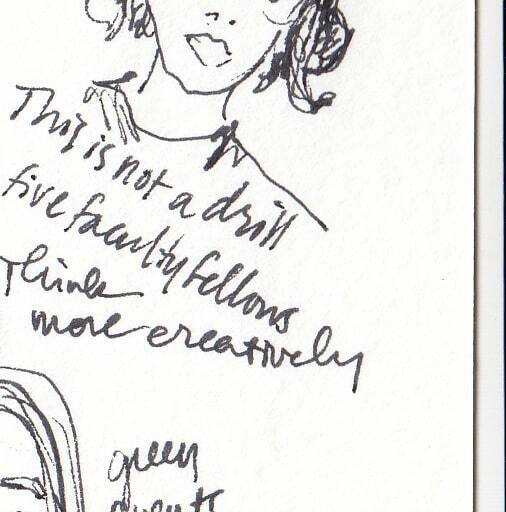 This is not a drill
five faculty fellows
Think
more creatively
green